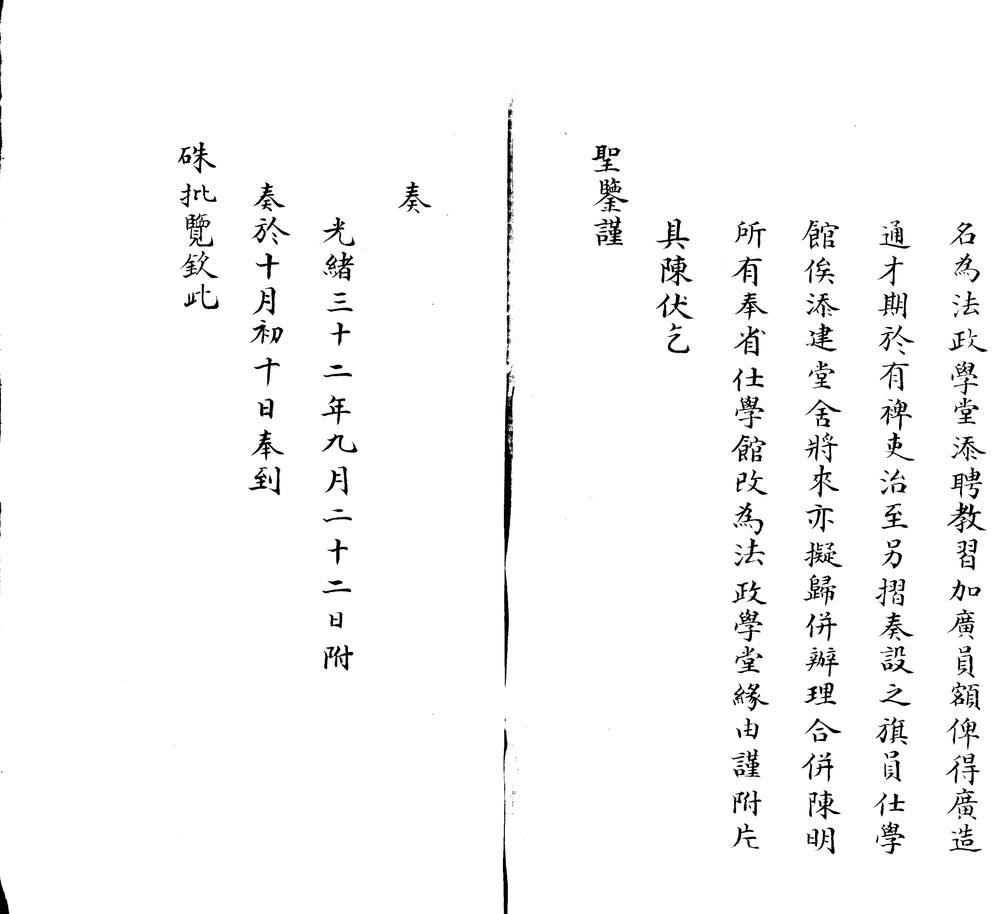 名為法政學堂添聘教習加廣員額俾得廣造
通才期於有裨吏治至另摺奏設之旗員仕學
館俟添建堂舍將來亦擬歸併辦理合併陳明
所有奉省仕學館改為法政學堂緣由謹附片
具陳伏乞
聖鑒謹
奏
光緒三十二年九月二十二日附
奏於十月初十日奉到
硃批覽欽此